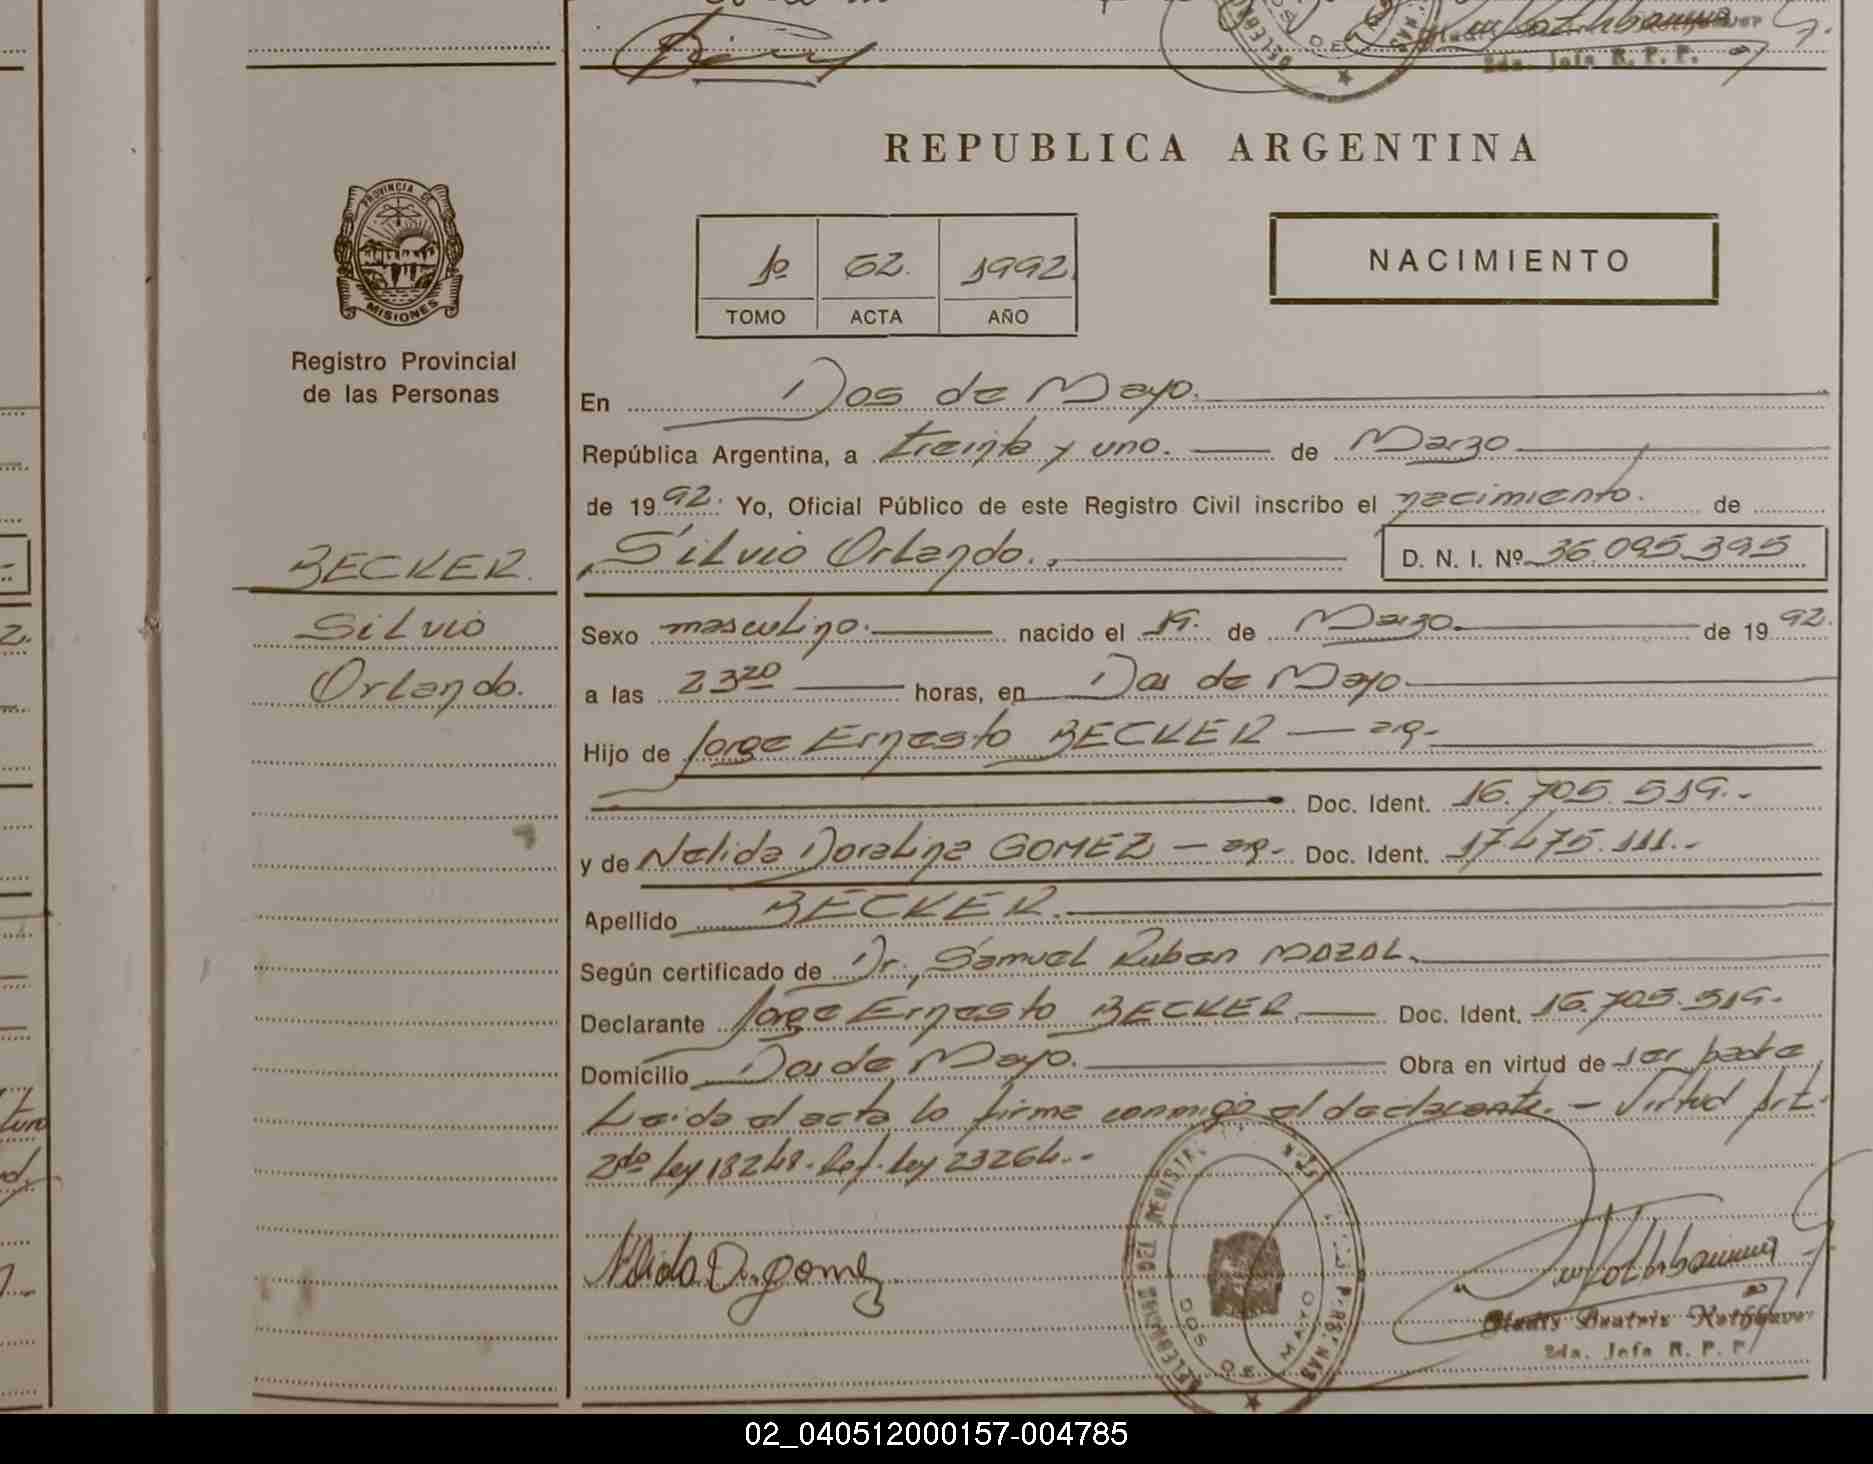 2da. Jefa R. P. P.
REPUBLICA ARGENTINA
PROVINCIA DE
MISIONES
Registro Provincial
de las Personas
1º 62. 1992.
TOMO ACTA AÑO
NACIMIENTO
En Dos de Mayo.
República Argentina, a treinta y uno. de Marzo
de 1992. Yo, Oficial Público de este Registro Civil inscribo el nacimiento. de
BECKER.
Silvio
Orlando.
Silvio Orlando. D. N. I. Nº 36.095.395
Sexo masculino. nacido el 19. de Marzo. de 1992.
a las 23 20 horas, en Dos de Mayo
Hijo de Jorge Ernesto BECKER — arg.
Doc. Ident. 16.705.519.-
y de Nelida Doralina GOMEZ — arg.- Doc. Ident. 17.475.111.-
Apellido BECKER.
Según certificado de Dr. Samuel Ruben MAZAL.
Declarante Jorge Ernesto BECKER. Doc. Ident. 16.705.519.-
Domicilio Dos de Mayo. Obra en virtud de ser padre
Leida el acta la firma conmigo el declarante. - Virtud Art.
2do Ley 18248. Ref. Ley 23264.-
Nelida D. gomez
DOS DE MAYO
Gladis Beatriz
2da. Jefa R. P. P.
02_040512000157-004785